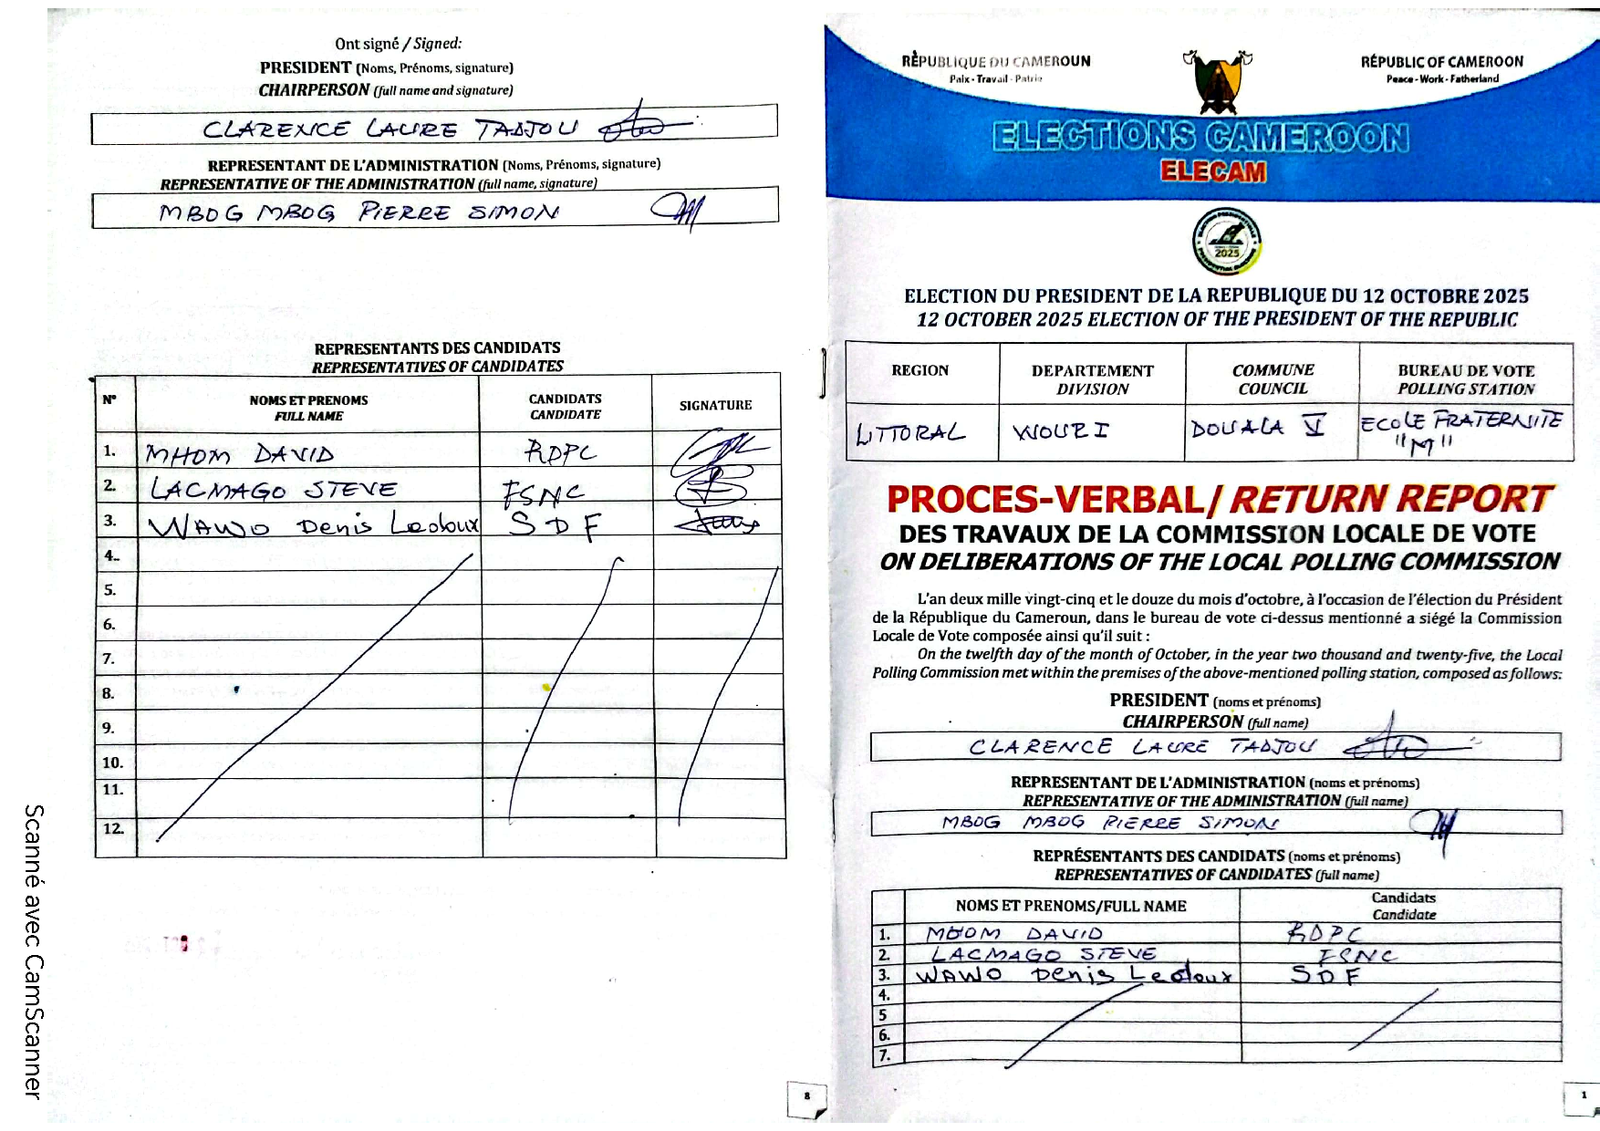 Ont signé / Signed:
PRESIDENT (Noms, Prénoms, signature)
CHAIRPERSON (full name and signature)
CLARENCE LAURE TADJOU
REPRESENTANT DE L'ADMINISTRATION (Noms, Prénoms, signature)
REPRESENTATIVE OF THE ADMINISTRATION (full name, signature)
MBOG MBOG PIERRE SIMON
REPRESENTANTS DES CANDIDATS
REPRESENTATIVES OF CANDIDATES
N° NOMS ET PRENOMS FULL NAME CANDIDATS CANDIDATE SIGNATURE
1. MHOM DAVID RDPC
2. LACMAGO STEVE FSNC
3. WAWO Denis Ledoux SDF
4.
5.
6.
7.
8.
9.
10.
11.
12.
8
Scanné avec CamScanner
REPUBLIQUE DU CAMEROUN
Paix - Travail - Patrie
REPUBLIC OF CAMEROON
Peace - Work - Fatherland
ELECTIONS CAMEROON
ELECAM
2025
ELECTION DU PRESIDENT DE LA REPUBLIQUE DU 12 OCTOBRE 2025
12 OCTOBER 2025 ELECTION OF THE PRESIDENT OF THE REPUBLIC
REGION DEPARTEMENT DIVISION COMMUNE COUNCIL BUREAU DE VOTE POLLING STATION
LITTORAL WOURI DOUALA V ECOLE FRATERNITE "M"
PROCES-VERBAL/ RETURN REPORT
DES TRAVAUX DE LA COMMISSION LOCALE DE VOTE
ON DELIBERATIONS OF THE LOCAL POLLING COMMISSION
L'an deux mille vingt-cinq et le douze du mois d'octobre, à l'occasion de l'élection du Président
de la République du Cameroun, dans le bureau de vote ci-dessus mentionné a siégé la Commission
Locale de Vote composée ainsi qu'il suit :
On the twelfth day of the month of October, in the year two thousand and twenty-five, the Local
Polling Commission met within the premises of the above-mentioned polling station, composed as follows:
PRESIDENT (noms et prénoms)
CHAIRPERSON (full name)
CLARENCE LAURE TADJOU
REPRESENTANT DE L'ADMINISTRATION (noms et prénoms)
REPRESENTATIVE OF THE ADMINISTRATION (full name)
MBOG MBOG PIERRE SIMON
REPRÉSENTANTS DES CANDIDATS (noms et prénoms)
REPRESENTATIVES OF CANDIDATES (full name)
NOMS ET PRENOMS/FULL NAME Candidats Candidate
1. MHOM DAVID RDPC
2. LACMAGO STEVE FSNC
3. WAWO Denis Ledoux SDF
4.
5
6.
7.
1